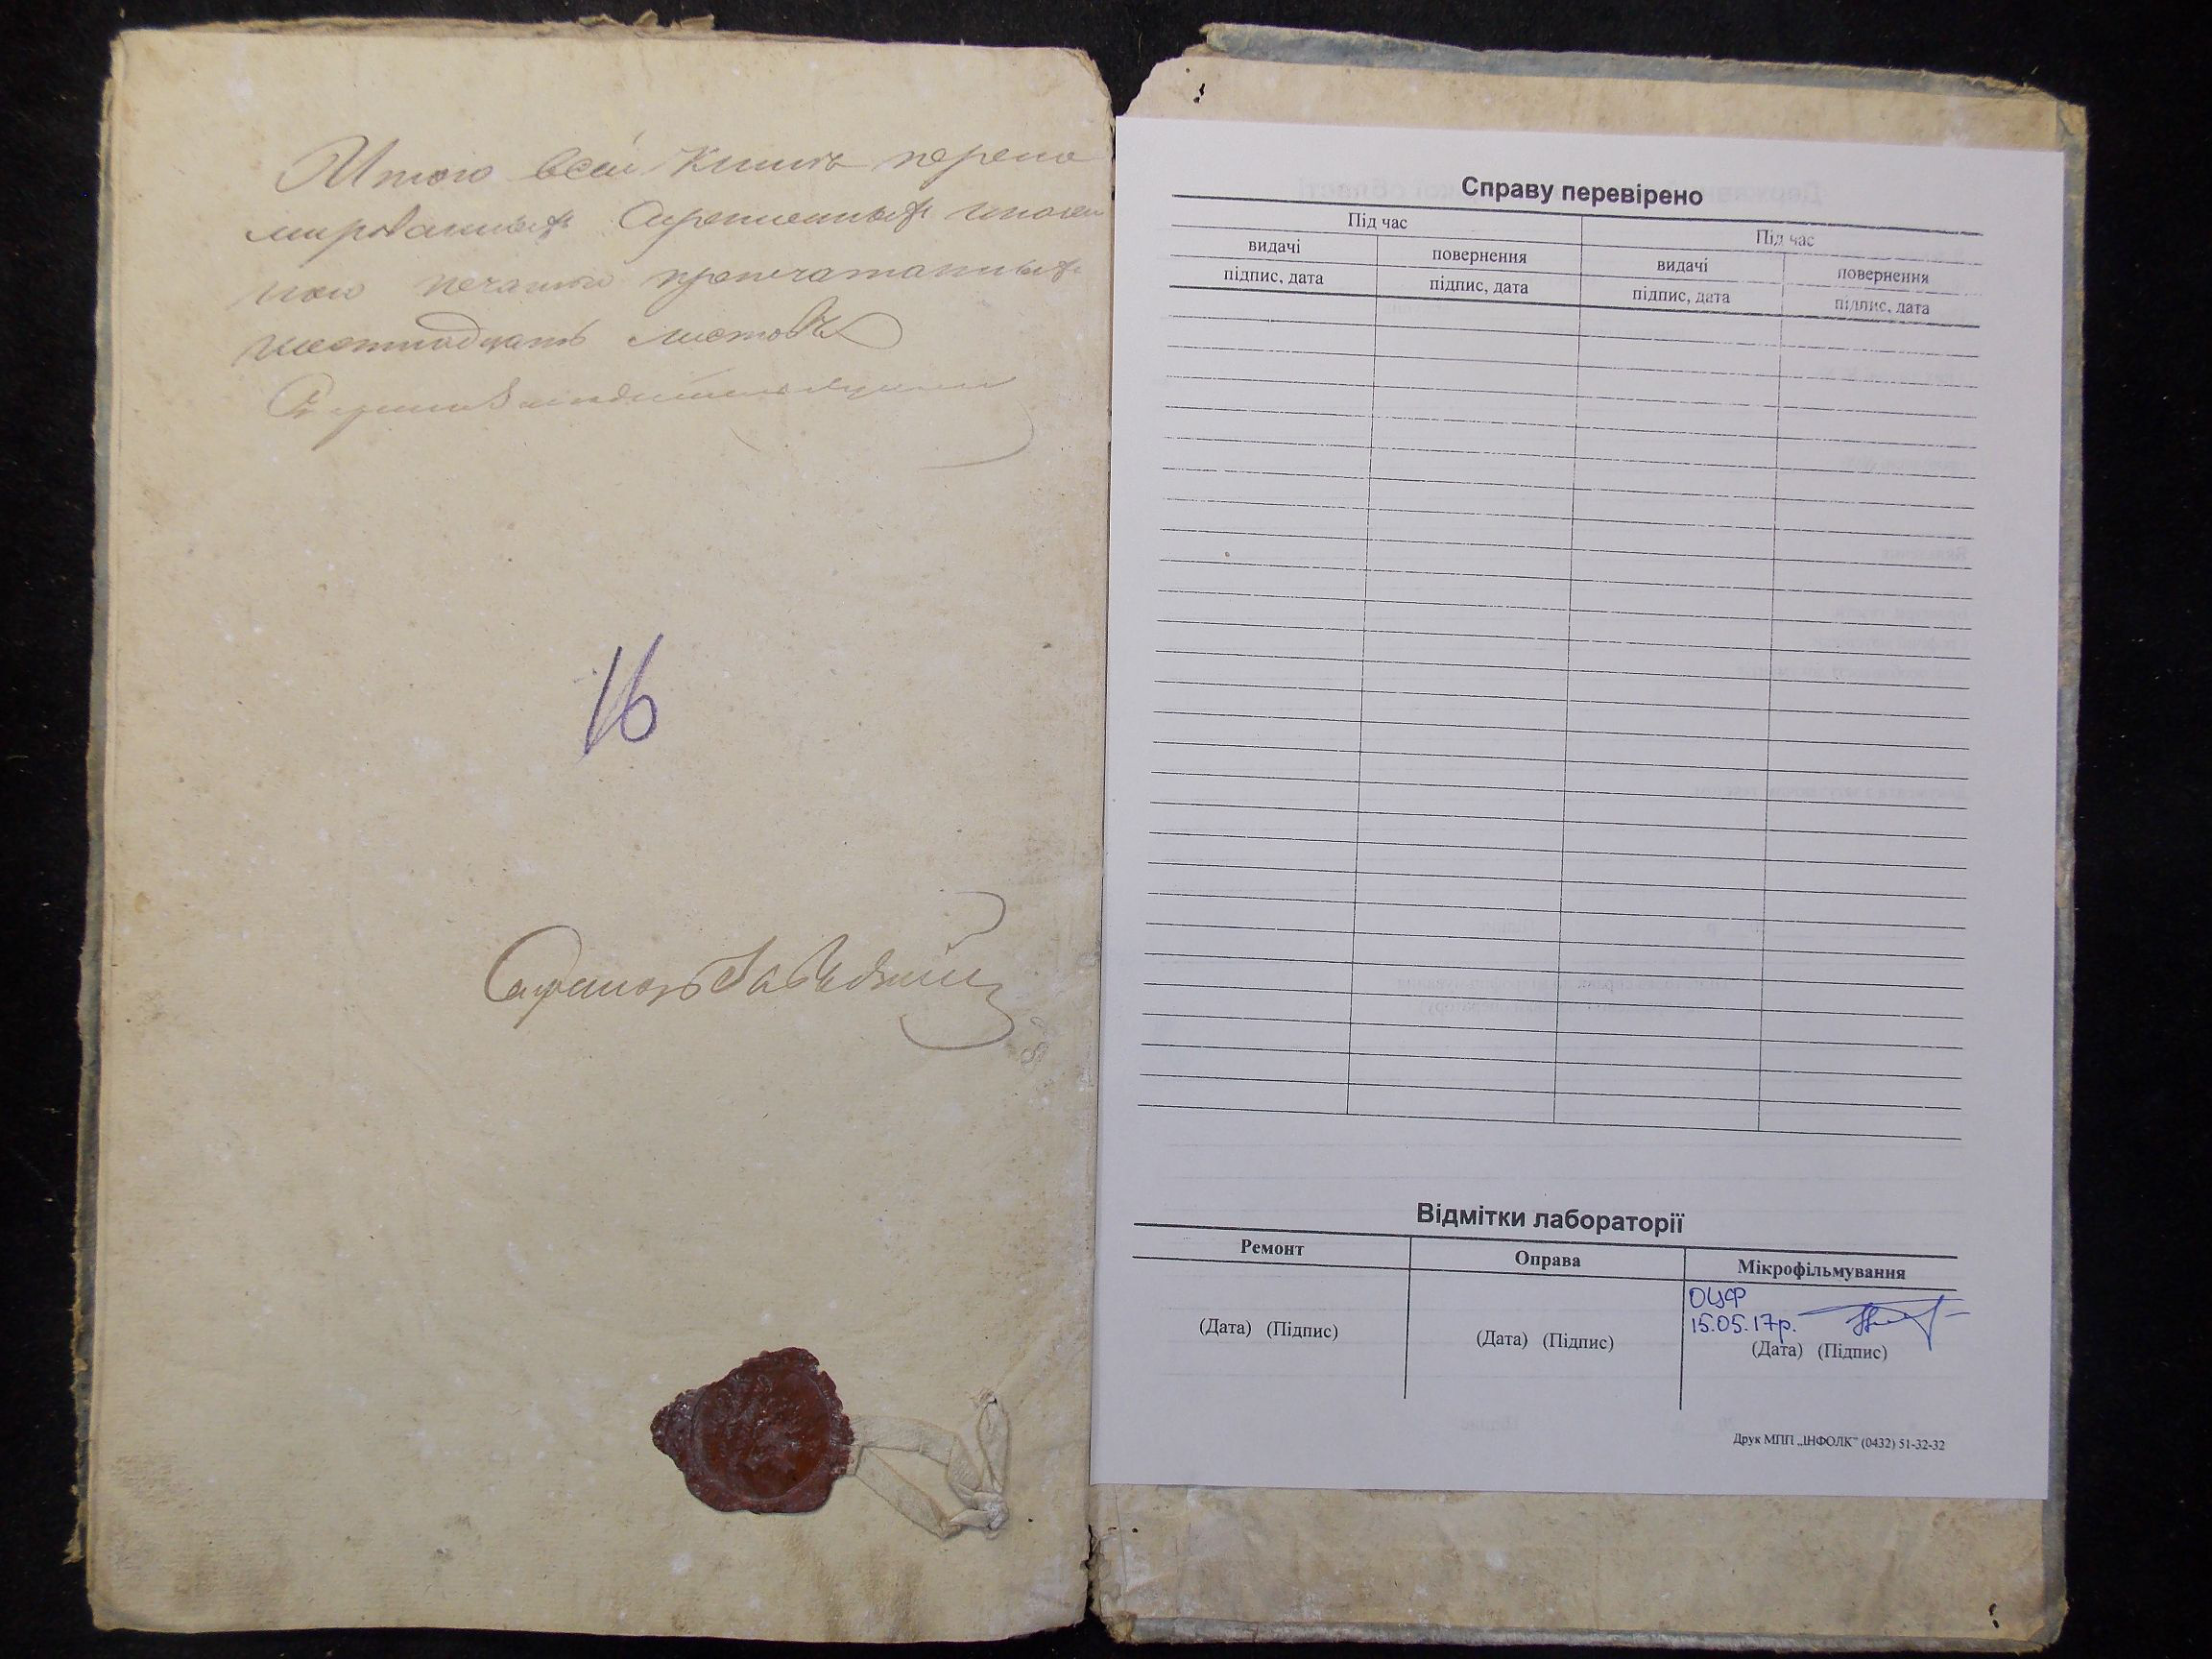 Итого всей Книгѣ перену
мированныхъ Скрепленныхъ
печатью пропечатанныхъ
шестнадцать листовъ
16
Справу перевірено
Під час
Під час
видачі
повернення
видачі
повернення
підпис, дата
підпис, дата
підпис, дата
підпис, дата
Відмітки лабораторії
Ремонт
Оправа
Мікрофільмування
ОЦФ
15.05.17р.
(Дата) (Підпис)
(Дата) (Підпис)
(Дата) (Підпис)
Друк МПП „ІНФОЛК” (0432) 51-32-32